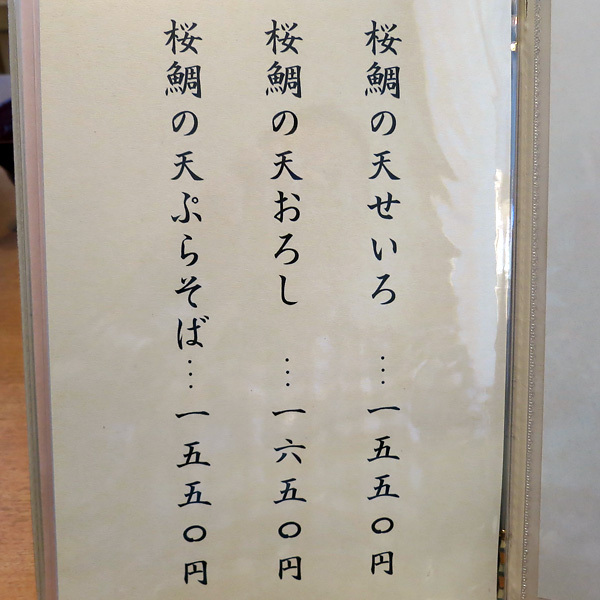 桜鯛の天せいろ …一五五〇円
桜鯛の天おろし …一六五〇円
桜鯛の天ぷらそば…一五五〇円